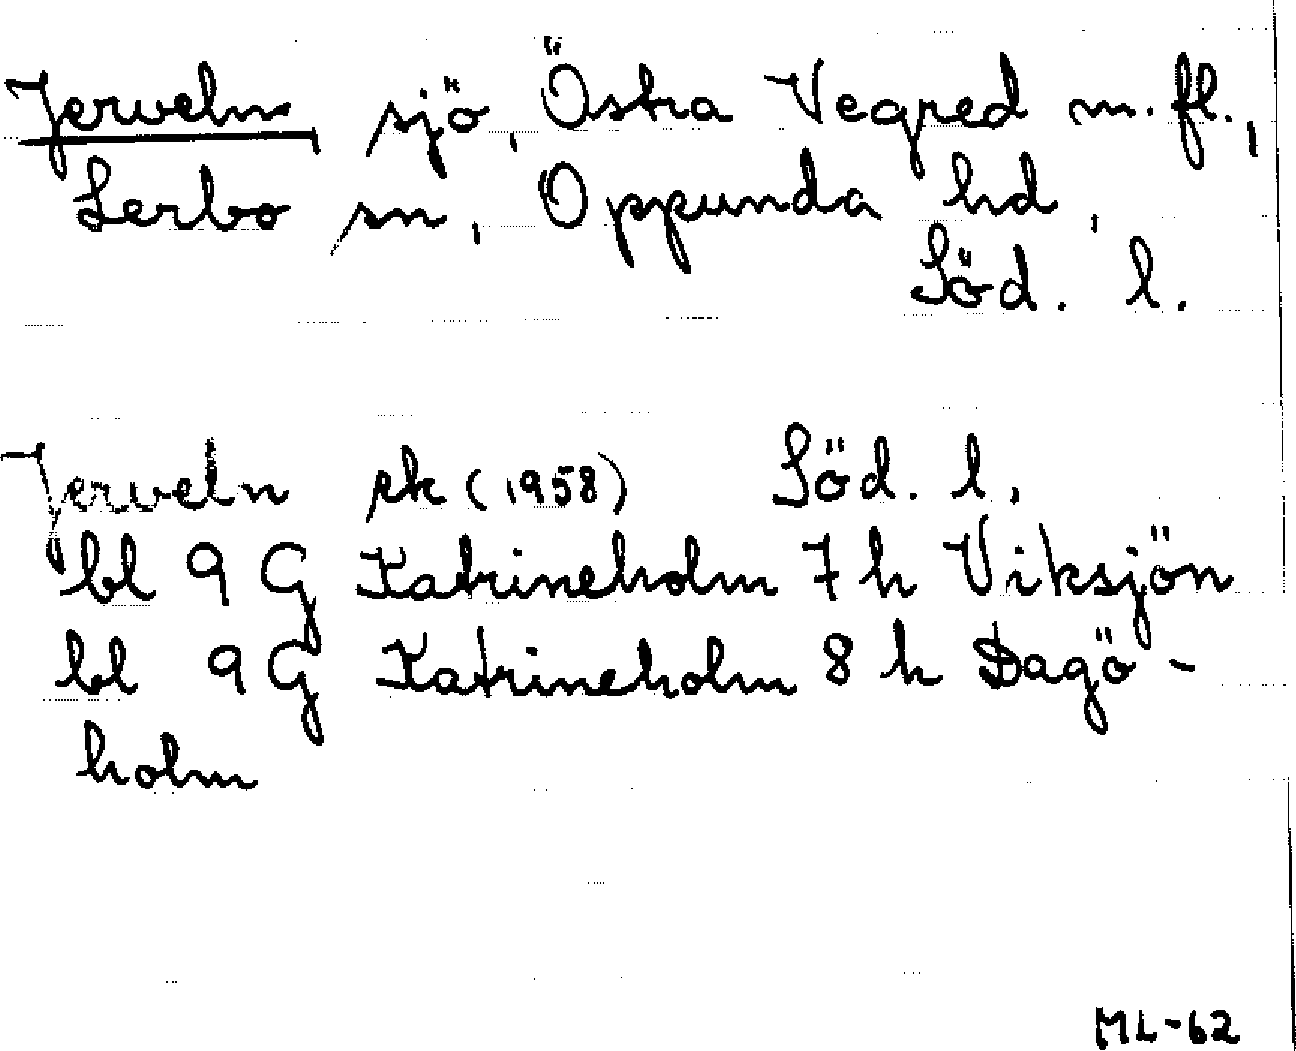 Jerveln sjö, Östra Vegred m. fl.,
Lerbo sn, Oppunda hd,
Söd. l.
Jerveln rk (1958) Söd. l.
bl 9 G Katrineholm 7 h Viksjön
bl 9 G Katrineholm 8 h Dagö-
holm
ML-62